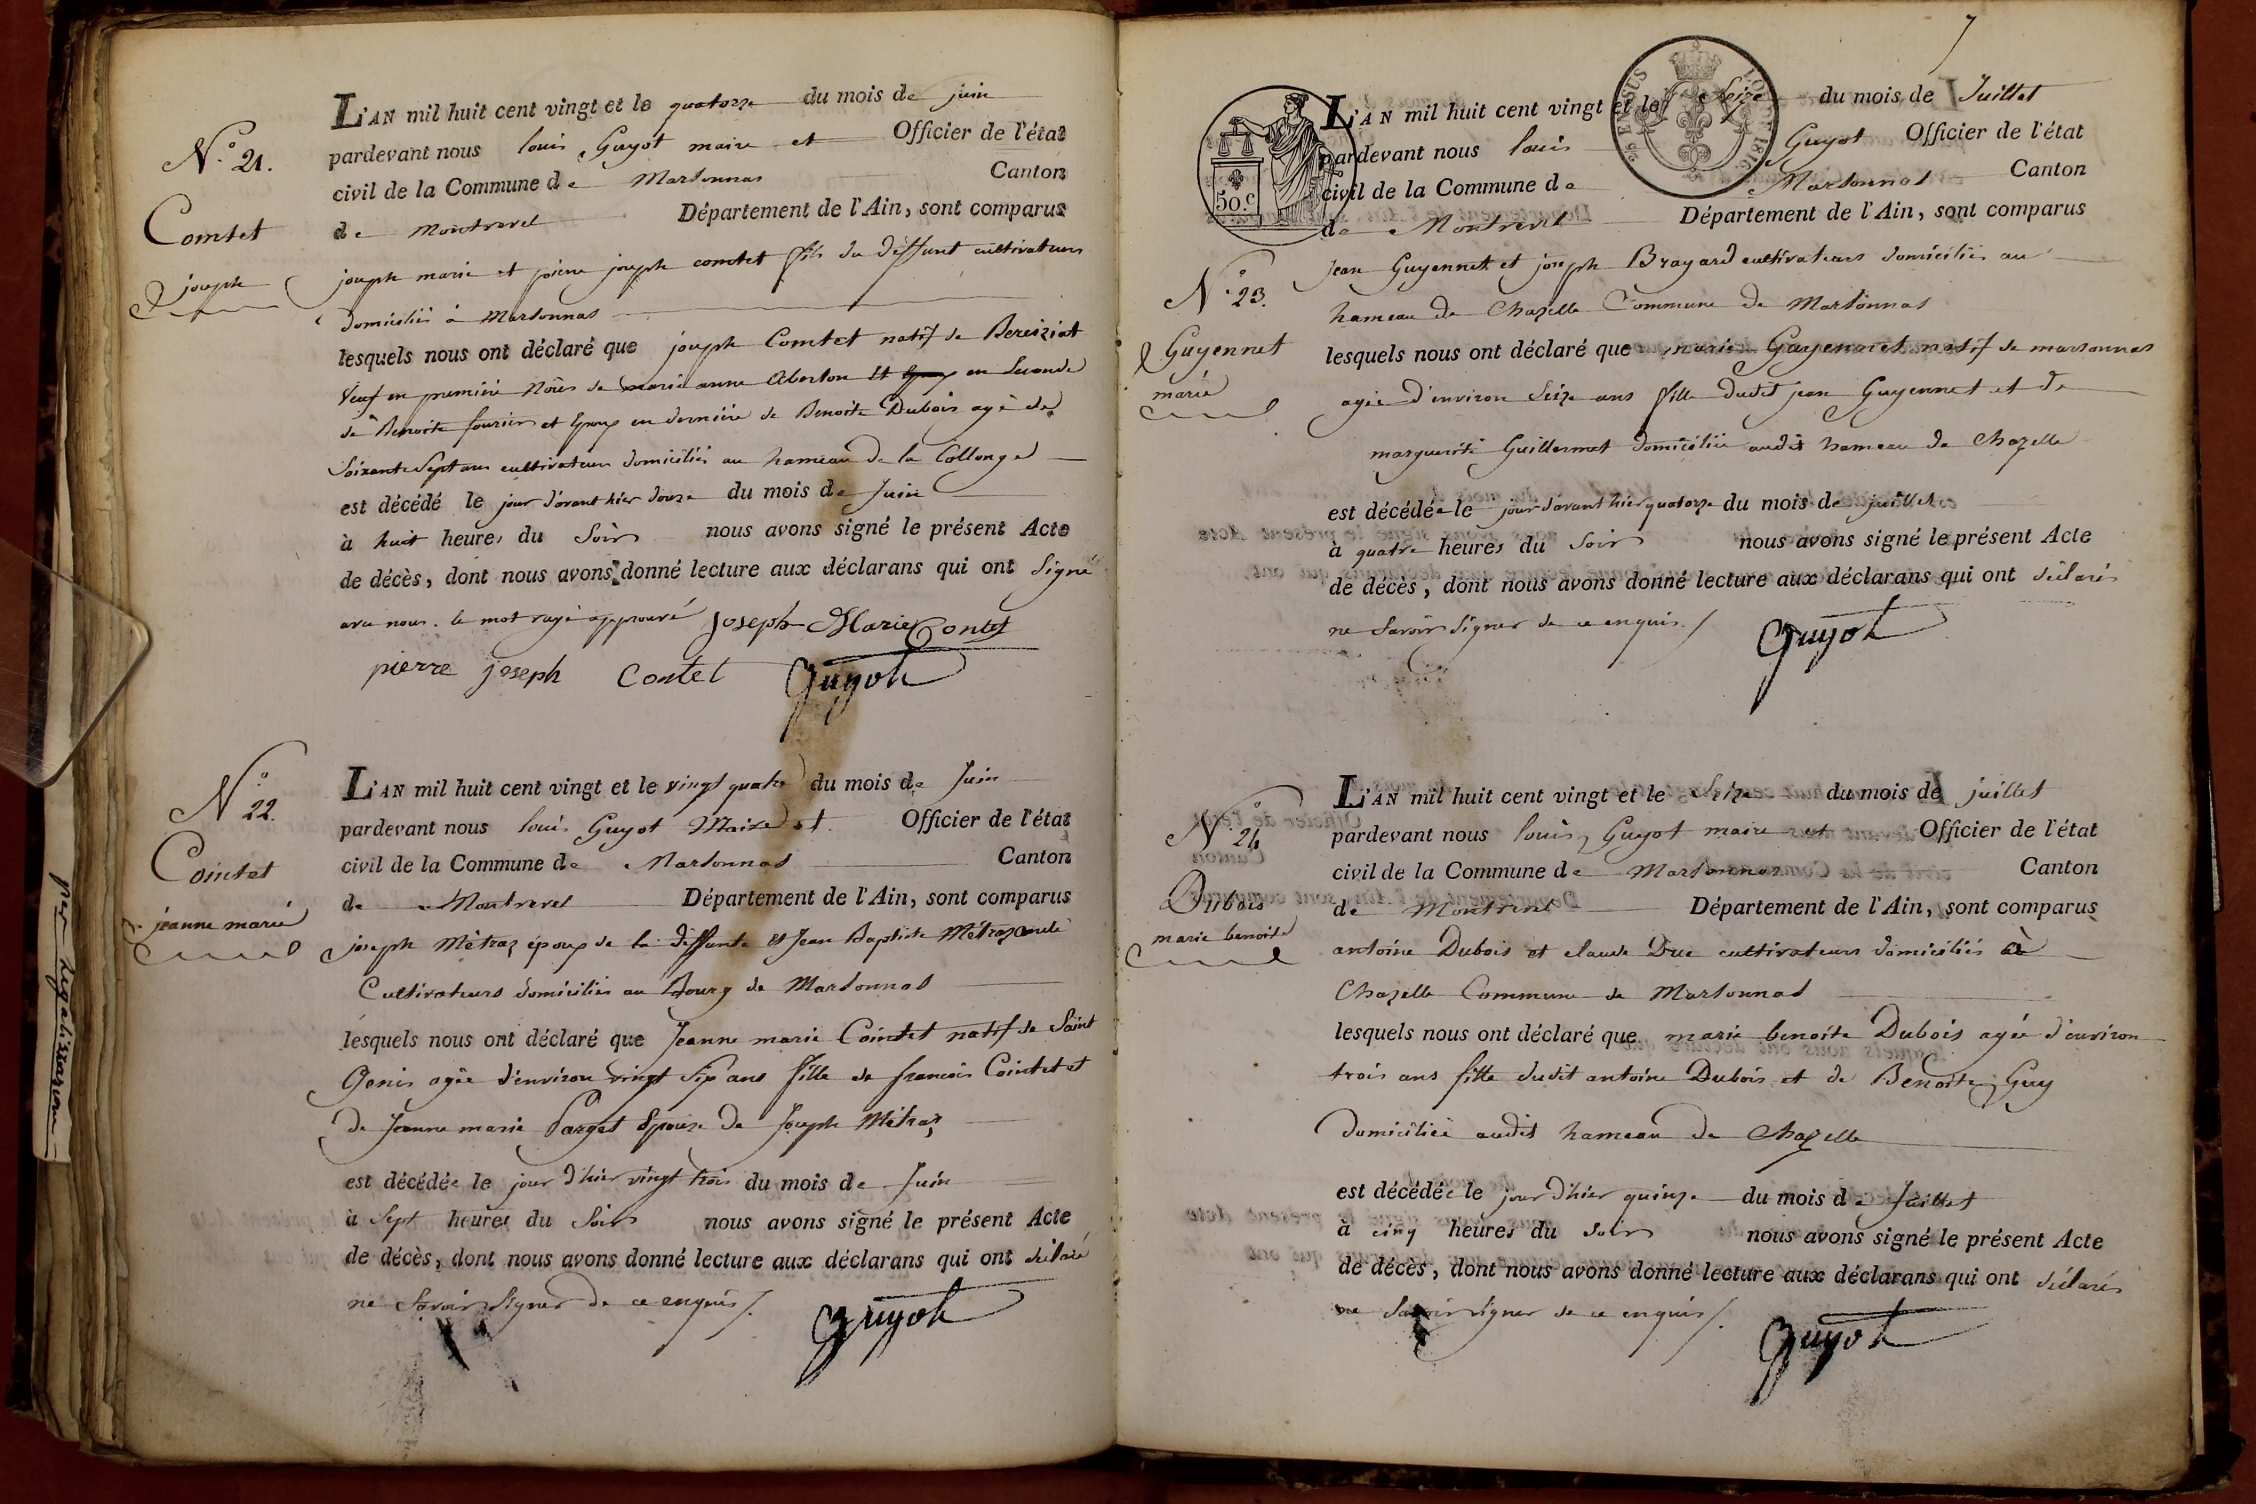 N.o 21.
Comtet
joseph
L'AN mil huit cent vingt et le quatorze du mois de juin
pardevant nous louis Guyot maire et Officier de l'état
civil de la Commune de Marsonnas Canton
de Montrevel Département de l'Ain, sont comparus
joseph marie et joseph comtet fils du deffunt cultivateurs
domiciliés à Marsonnas
lesquels nous ont déclaré que joseph Comtet natif de Bereiziat
Veuf en premiere Noces de marie anne Aborton et en Seconde
de Benoite fourier et Epoux en derniére de Benoite Dubois agé de
Soixante Sept ans cultivateur domiciliés au hameau de la Collonge
est décédé le jour d'avant hier douze du mois de Juin
à huit heures du Soir nous avons signé le présent Acte
de décès, dont nous avons donné lecture aux déclarans qui ont Signé
avec nous. le mot rayé approuvé Joseph Marie Contet
pierre joseph Contet Guyot
N.o 22.
Cointet
jeanne marie
L'AN mil huit cent vingt et le vingt quatre du mois de Juin
pardevant nous louis Guyot Maire et Officier de l'état
civil de la Commune de Marsonnas Canton
de Montrevel Département de l'Ain, sont comparus
joseph Métraz époux de la deffunte et Jean Baptiste Métraz
Cultivateurs domiciliés au Bourg de Marsonnas
lesquels nous ont déclaré que Jeanne marie Cointet natif de Saint
Genis agée d'environ vingt Six ans fille de francois Cointet et
de Jeanne marie Parget Epouse de Joseph Métraz
est décédée le jour d'hier vingt trois du mois de Juin
à Sept heures du Soir nous avons signé le présent Acte
de décès, dont nous avons donné lecture aux déclarans qui ont déclaré
ne Savoir Signer de ce enquis /.
Guyot
7
50.c
L'AN mil huit cent vingt et le Seize du mois de Juillet
pardevant nous louis Guyot Officier de l'état
civil de la Commune de Marsonnas Canton
de Montrevel Département de l'Ain, sont comparus
N.o 23.
Guyennet
marie
Jean Guyennet et joseph Brayard cultivateurs domiciliés au
hameau de Chazelle Commune de Marsonnas
lesquels nous ont déclaré que marie Guyennet natif de marsonnas
agée d'environ Seize ans fille dudit jean Guyennet et de
marguerite Guillermet domiciliée audit hameau de Chazelle
est décédée le jour d'avant hier quatorze du mois de juillet
à quatre heures du Soir nous avons signé le présent Acte
de décès, dont nous avons donné lecture aux déclarans qui ont déclarés
ne Savoir Signer de ce enquis. /
Guyot
N.o 24
Dubois
marie benoite
L'AN mil huit cent vingt et le Seize du mois de juillet
pardevant nous louis Guyot maire et Officier de l'état
civil de la Commune de Marsonnas Canton
de Montrevel Département de l'Ain, sont comparus
antoine Dubois et claude Duc cultivateurs domiciliés à
Chazelle Commune de Marsonnas
lesquels nous ont déclaré que marie benoite Dubois agée d'environ
trois ans fille dudit antoine Dubois et de Benoite Guy
domiciliée audit hameau de Chazelle
est décédée le jour d'hier quinze du mois de Juillet
à cinq heures du Soir nous avons signé le présent Acte
de décès, dont nous avons donné lecture aux déclarans qui ont déclarés
ne Savoir Signer de ce enquis /.
Guyot